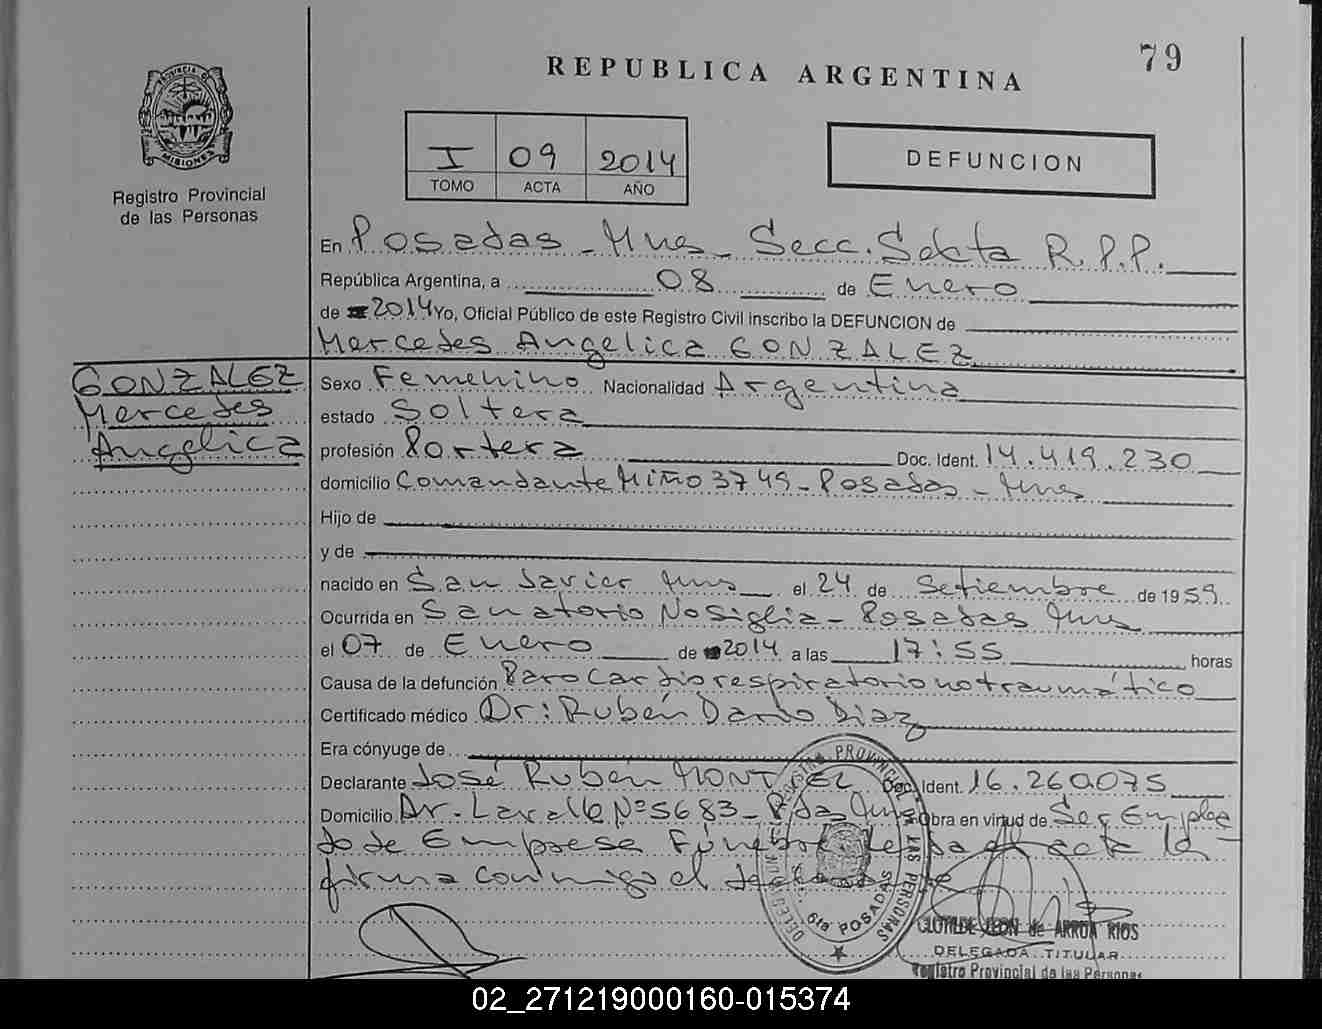 79
REPUBLICA ARGENTINA
PROVINCIA DE MISIONES
Registro Provincial
de las Personas
I 09 2014
TOMO ACTA AÑO
DEFUNCION
En Posadas - Mnes - Secc. Sexta R.P.P.
República Argentina, a 08 de Enero
de 2014 Yo, Oficial Público de este Registro Civil inscribo la DEFUNCION de
Mercedes Angelica GONZALEZ
GONZALEZ
Mercedes
Angelica
Sexo Femenino Nacionalidad Argentina
estado Soltera
profesión Portera Doc. Ident. 14.419.230
domicilio Comandante Miño 3749 - Posadas - Mnes
Hijo de
y de
nacido en San Javier Mnes el 24 de Setiembre de 1959
Ocurrida en Sanatorio Nosiglia - Posadas Mnes
el 07 de Enero de 2014 a las 17:55 horas
Causa de la defunción Paro Cardiorespiratorio no traumático
Certificado médico Dr: Rubén Dario Diaz
Era cónyuge de
Declarante José Rubén MONTIEL Doc. Ident. 16.260.075
Domicilio Av. Lavalle Nº 5683 - Pdas Mnes Obra en virtud de Ser Emplea
do de Empresa Fúnebre
firma conmigo el
REGISTRO PROVINCIAL DE LAS PERSONAS
6ta POSADAS
CLOTILDE LEON de ARRUA RIOS
DELEGADA TITULAR
Registro Provincial de las Personas
02_271219000160-015374